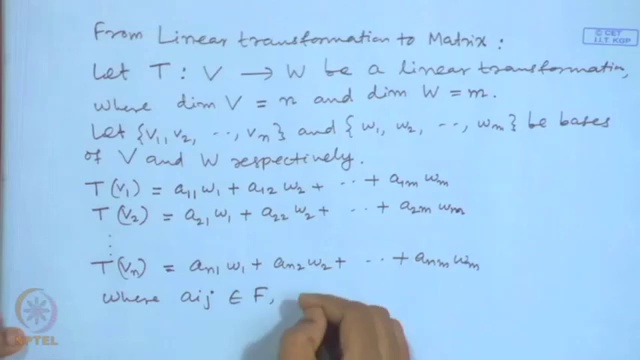 From Linear transformation to Matrix:
© CET
I.I.T. KGP
Let T : V → W be a linear transformation,
where dim V = n and dim W = m.
Let {v₁, v₂, .., vₙ} and {w₁, w₂, .., wₘ} be bases
of V and W respectively.
T(v₁) = a₁₁ w₁ + a₁₂ w₂ + .. + a₁ₘ wₘ
T(v₂) = a₂₁ w₁ + a₂₂ w₂ + .. + a₂ₘ wₘ
⋮
T(vₙ) = aₙ₁ w₁ + aₙ₂ w₂ + .. + aₙₘ wₘ
where aij ∈ F,
NPTEL